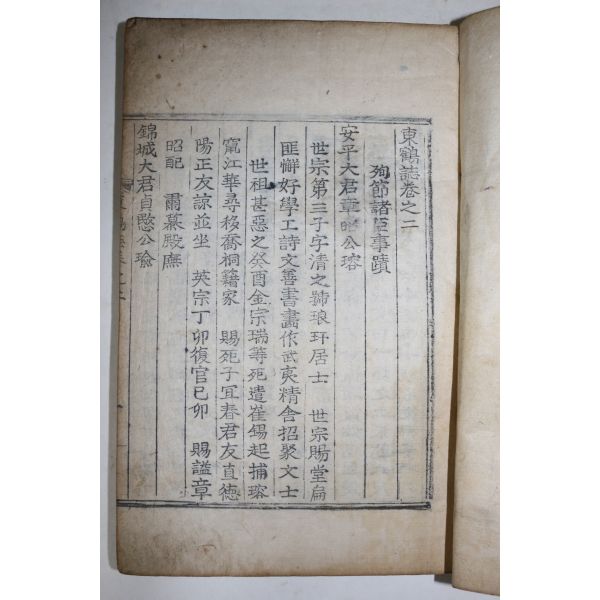 東鶴誌卷之二
殉節諸臣事蹟
安平大君章昭公瑢
世宗第三子字清之號琅玕居士 世宗賜堂扁
匪懈好學工詩文善書畵作武夷精舍招聚文士
世祖甚惡之癸酉金宗瑞等死遣崔錫起捕瑢
竄江華尋移喬桐籍家 賜死子宜春君友直德
陽正友諒並坐 英宗丁卯復官己卯 賜謚章
昭配 肅慕殿廡
錦城大君貞愍公瑜